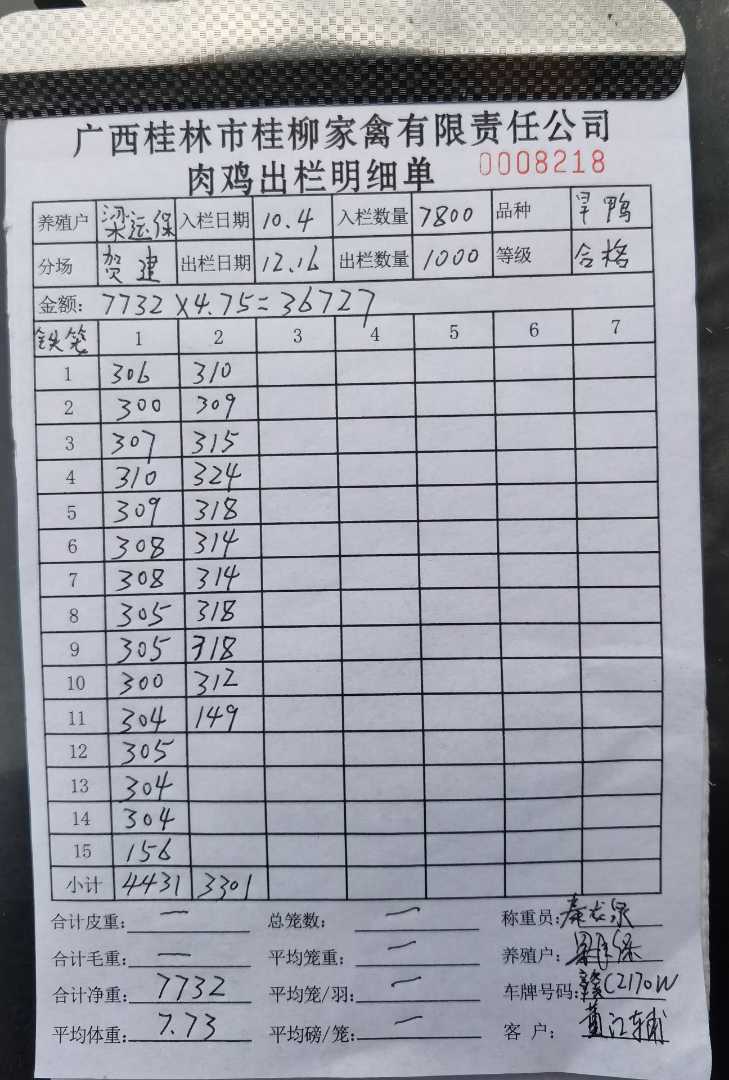 广西桂林市桂柳家禽有限责任公司
肉鸡出栏明细单 0008218
养殖户 梁运保 入栏日期 10.4 入栏数量 7800 品种 旱鸭
分场 贺建 出栏日期 12.16 出栏数量 1000 等级 合格
金额: 7732×4.75=36727
铁笼 1 2 3 4 5 6 7
1 306 310
2 300 309
3 307 315
4 310 324
5 309 318
6 308 314
7 308 314
8 305 318
9 305 318
10 300 312
11 304 149
12 305
13 304
14 304
15 156
小计 4431 3301
合计皮重: 一 总笼数: 一 称重员:
合计毛重: 一 平均笼重: 一 养殖户:
合计净重: 7732 平均笼/羽: 一 车牌号码: 赣C2170W
平均体重: 7.73 平均磅/笼: 一 客户: 黄江辅